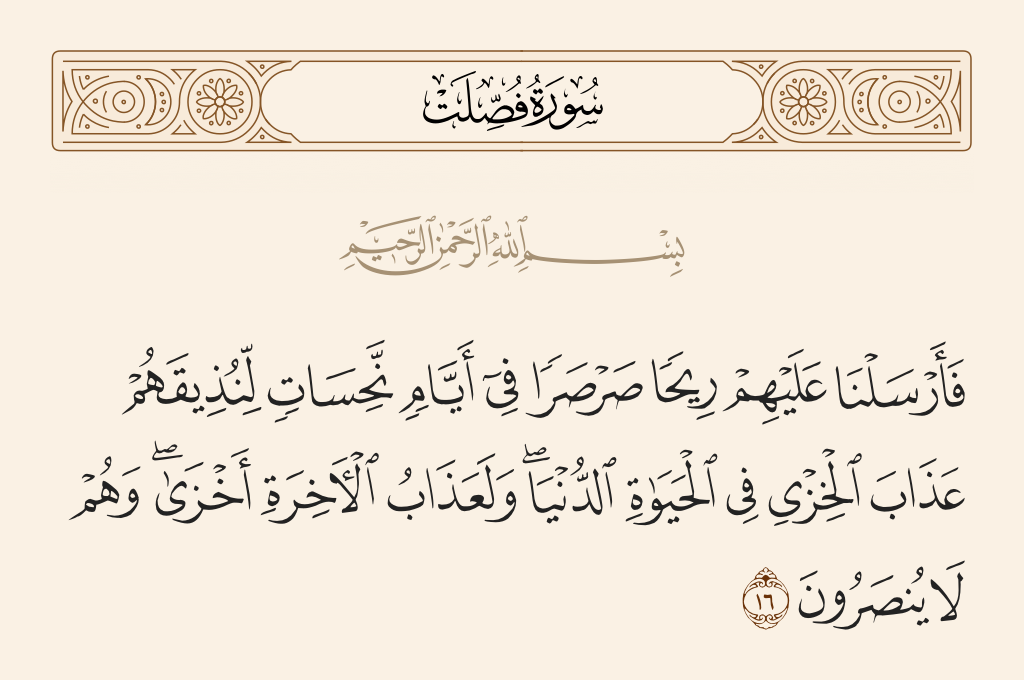 سُورَةُ فُصِّلَتْ
بِسْمِ ٱللَّهِ ٱلرَّحْمَٰنِ ٱلرَّحِيمِ
فَأَرْسَلْنَا عَلَيْهِمْ رِيحًا صَرْصَرًا فِىٓ أَيَّامٍ نَّحِسَاتٍ لِّنُذِيقَهُمْ
عَذَابَ ٱلْخِزْىِ فِى ٱلْحَيَوٰةِ ٱلدُّنْيَا ۖ وَلَعَذَابُ ٱلْـَٔاخِرَةِ أَخْزَىٰ ۖ وَهُمْ
لَا يُنصَرُونَ ١٦